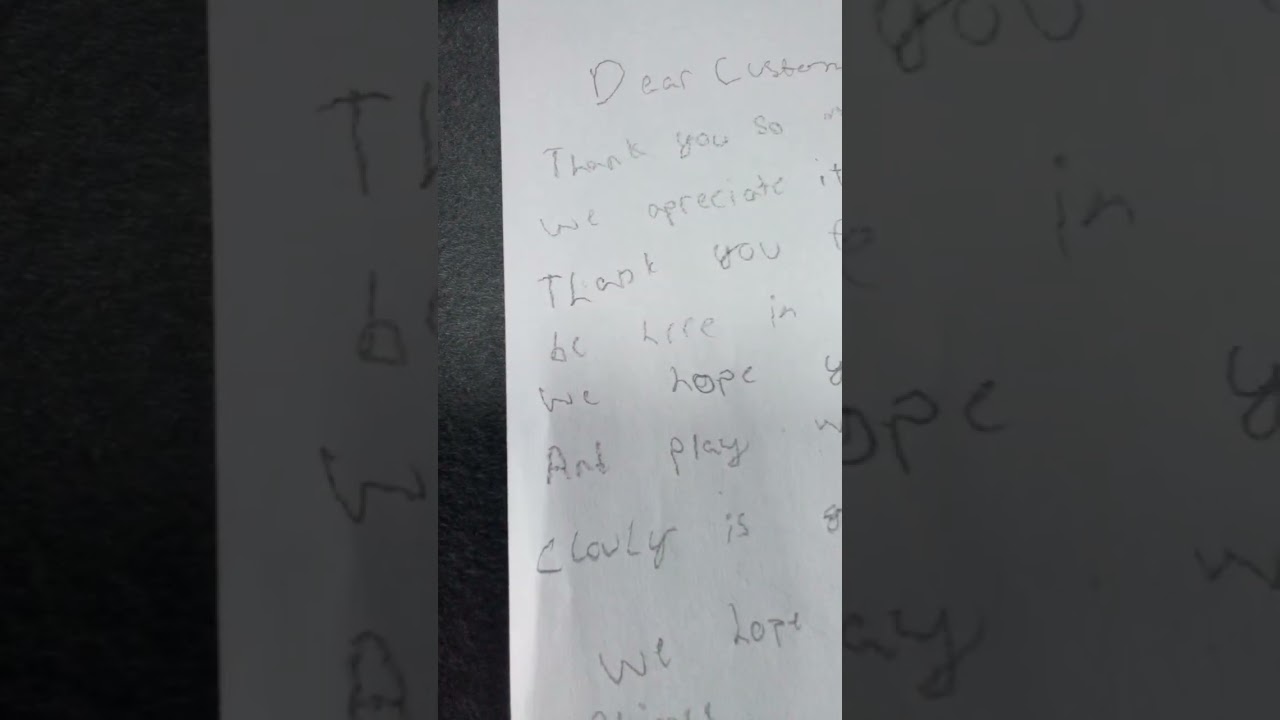 Dear Custom
Thank you so m
We apreciate it
Thank you fo
be here in
We hope y
And play w
Clouly is g
We hope